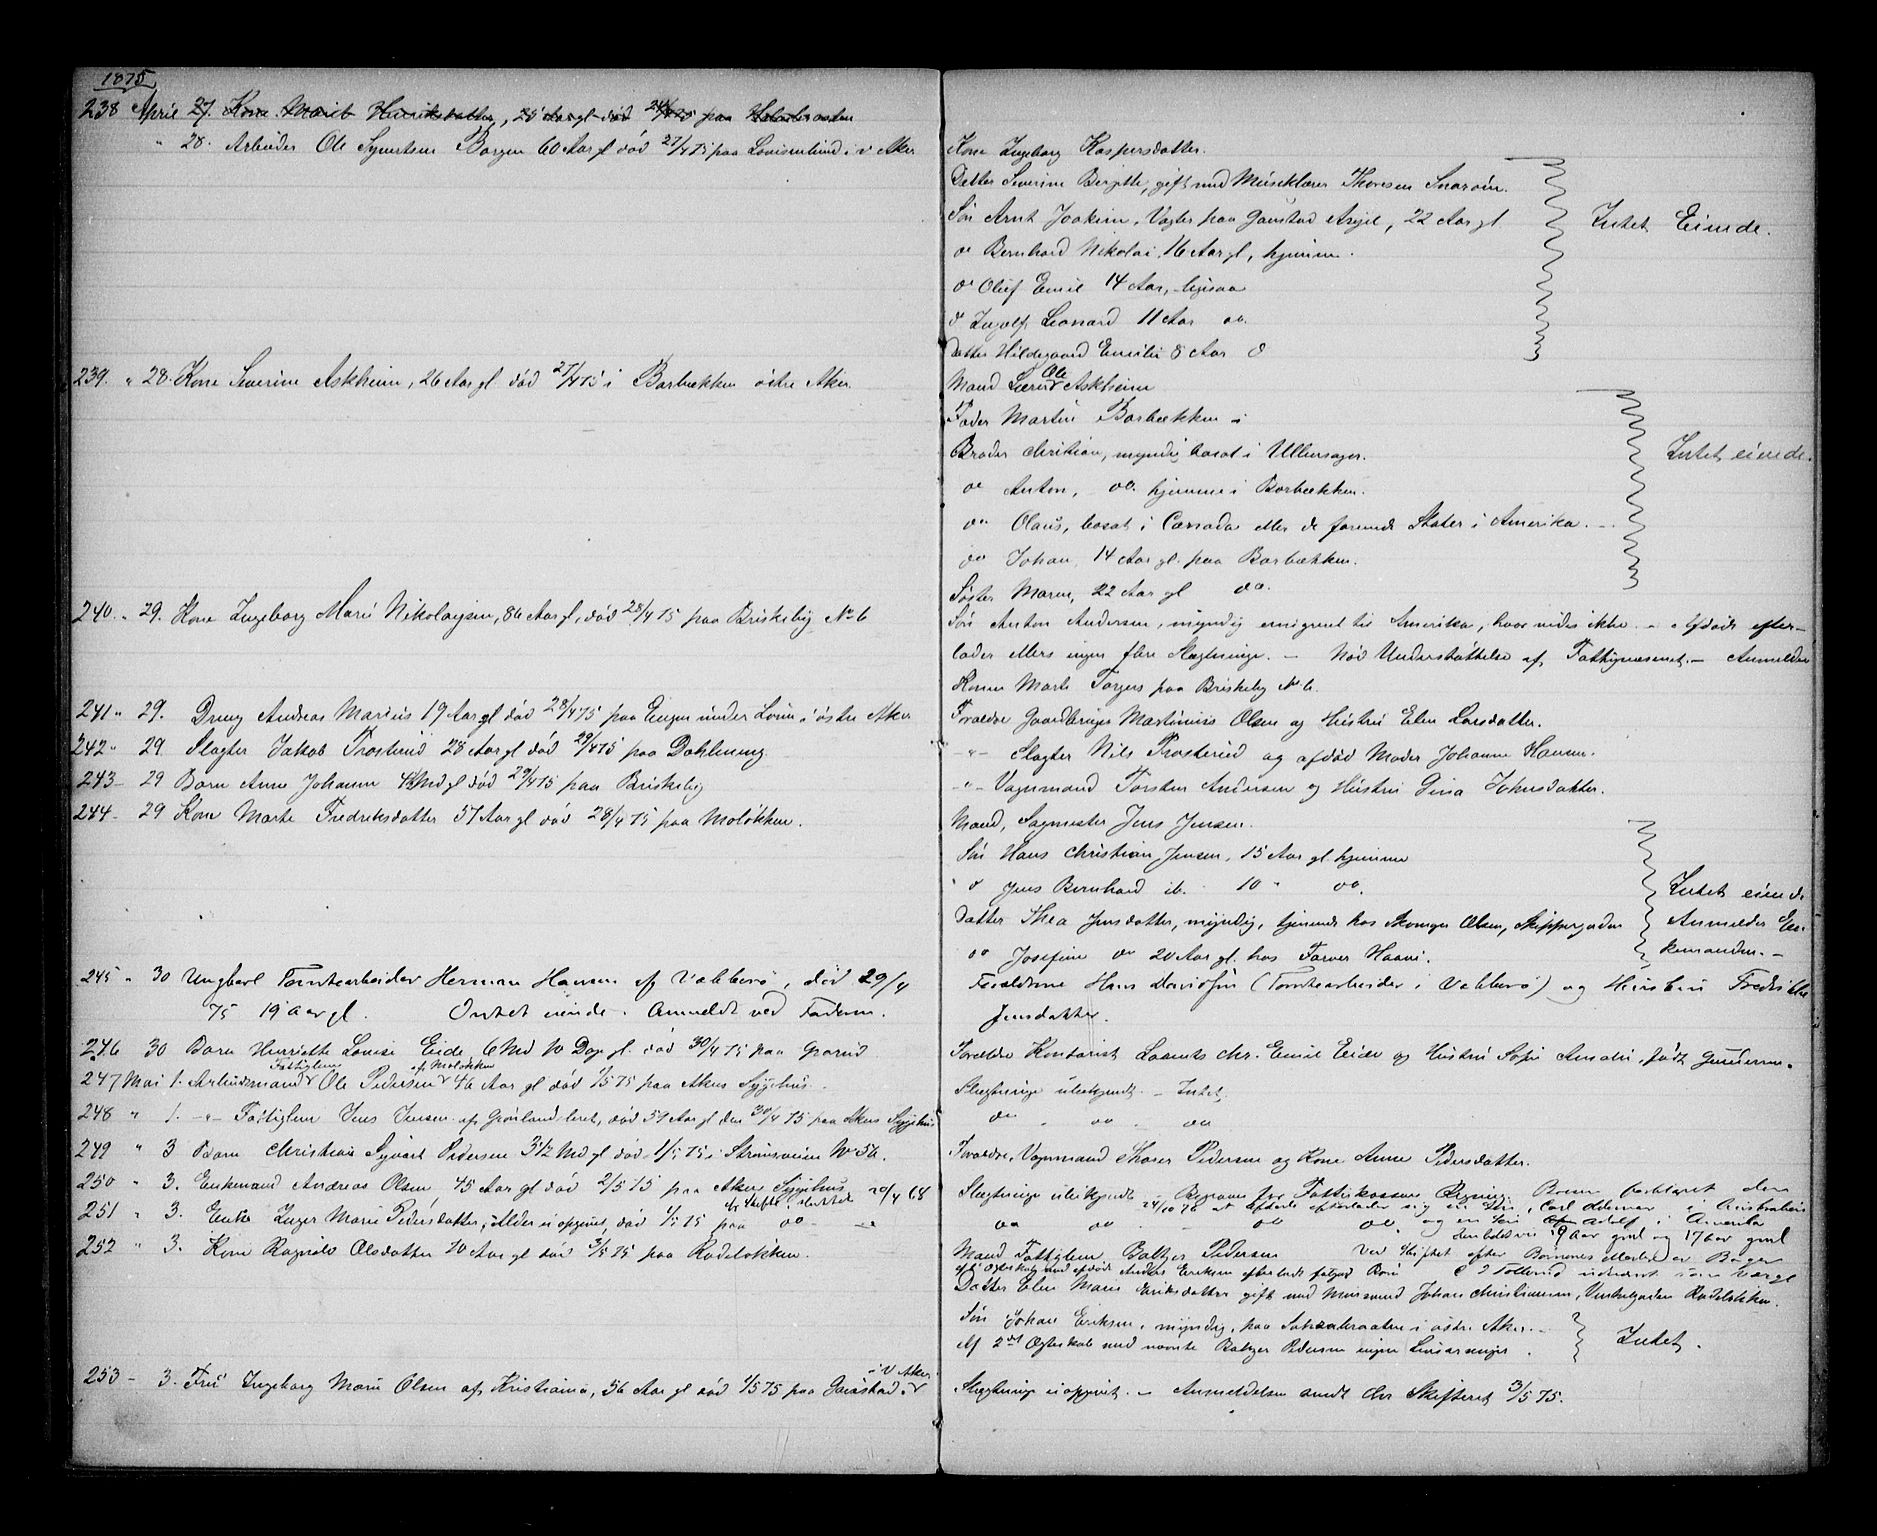 1875
238 April 27. Kone Marit Henriksdatter, 25 Aar gl. død 24/4 75 paa
" 28. Arbeider Ole Syvertsen Borgen 60 Aar gl død 27/4 75 paa Louisenlund i v Aker
Kone Ingeborg Kaspersdatter.
Datter Severine Birgitte, gift med Thoresen Snarøen.
Søn Arnt Joakim, Vogter paa Gaustad Asyl, 22 Aar gl
do Bernhard Nikolai, 16 Aar gl, hjemme.
do Oluf Emil 14 Aar, ligesaa
d Ingolf Leonard 11 Aar do.
Datter Hildegaard Emilie 8 Aar d
Intet Eiende.
239. " 28. Kone Severine Askheim, 26 Aar gl død 27/4 75 i Borbækken østre Aker.
Mand Lærer Ole Askheim
Fader Martin Borbækken
Broder Christian, myndig bosat i Ullensager.
do Anton, do. hjemme i Borbækken.
do Olaus, bosat i Canada eller de forenede Stater i Amerika.
do Johan, 14 Aar gl. paa Borbækken.
Søster Maren, 22 Aar gl do.
Intet eiende.
240. " 29. Kone Ingeborg Marie Nikolaysen, 86 Aar gl, død 28/4 75 paa Briskeby No 6
Søn Anton Andersen, myndig emigreret til Amerika, hvor vides ikke. - Afdøde efter-
lader ellers ingen flere Slægtninge. - Nød Understøttelse af Fattigvæsenet. - Anmelder
Konen Marte Torgers paa Briskeby No 6.
241 " 29. Dreng Andreas Marius 19 Aar gl død 28/4 75 paa Engen under Loen i østre Aker
Forældre Gaardbruger Martinius Olsen og Hustru Elen Larsdatter.
242 " 29. Slagter Jakob Trosterud 28 Aar gl død 29/4 75 paa Dahlneng.
- " - Slagter Nils Trosterud og afdød Moder Johanne Hansen.
243 - 29 Barn Anne Johanne 4 Md gl død 29/4 75 paa Briskeby
- " - Vognmand Torsten Andersen og Hustru Gina Johnsdatter.
244 - 29 Kone Marte Fredriksdatter 57 Aar gl død 28/4 75 paa Moløkken.
Mand, Sagmester Jens Jensen.
Søn Hans Christian Jensen, 15 Aar gl. hjemme
d Jens Bernhard ib. 10 " do.
Datter Thea Jensdatter, myndig, tjenende hos Olsen, Skippergaden
do Josefine do 20 Aar gl. hos Farver
Intet eiende
Anmelder En-
kemanden. -
245 " 30 Ungkarl Tomtearbeider Herman Hansen af Vækkerø, død 29/4
75 19 Aar gl. Intet eiende. Anmeldt ved Faderen.
Forældrene Hans Davidsen (Tomtearbeider i Vækkerø) og Hustru Fredrikke
Jensdatter.
246 30 Barn Henriette Louise Eide, 6 Md 10 Dage gl. død 30/4 75 paa Grorud
Forældre Kontorist Laurits Chr. Emil Eide og Hustru Sofie Amalie, født Gundersen.
247 Mai 1. Arbeidsmand Fattiglem Ole Pedersen af Moløkken 46 Aar gl død 1/5 75 paa Akers Sygehus.
Slægtninge ubekjendt. - Intet.
248 " 1. - " - Fattiglem Jens Jensen af Grønland, død 57 Aar gl den 30/4 75 paa Akers Sygehus
do " do - do
249 " 3 Barn Christian Syvert Pedersen 3 1/2 Md gl død 1/5 75 i Strømsveien No 56.
Forældre, Vognmand Thoser Pedersen og Kone Anne Pedersdatter.
250 " 3. Enkemand Andreas Olsen, 45 Aar gl død 2/5 75 paa Akers Sygehus
Slægtninge ubekjendt
251 " 3. Enke Inger Marie Pedersdatter, Alder ei opgivet, død 1/5 75 paa do
do do - do do
24/10 78 at afdøde efterlader sig en Søn, Carl i Australien
og en Søn Adolf i Amerika
252 " 3. Kone Ragnild Olsdatter 70 Aar gl død 3/5 75 paa Rodeløkken.
Mand Fattiglem Baltzer Pedersen
Datter Elen Marie Eriksdatter gift med Murmand Johan Christiansen, Rodeløkken.
Søn Johan Eriksen, myndig, paa i østre Aker. -
Af 2det Ægteskab med nævnte Baltzer Pedersen ingen Livsarvinger.
Intet.
253 - 3. Frú Ingeborg Marie Olsen af Kristiania, 56 Aar gl død 1/5 75 paa Gaustad i V Aker.
Slægtninge ei opgivet. - Anmeldelsen sendt Skifteret 3/5 75.